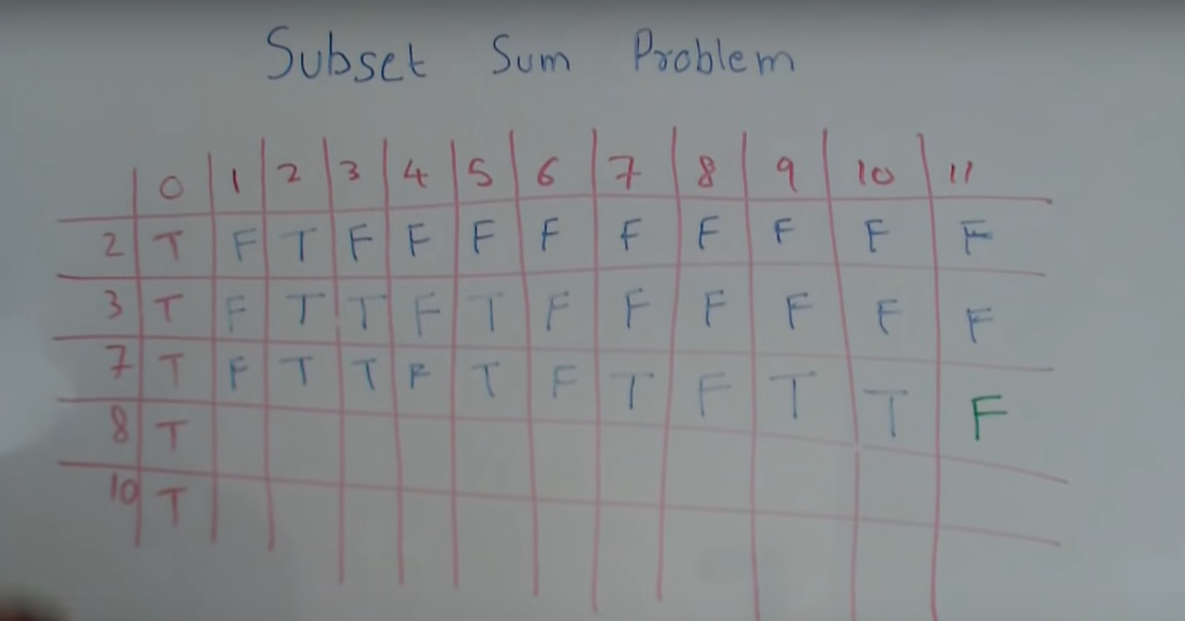 Subset Sum Problem
0 1 2 3 4 5 6 7 8 9 10 11
2 T F T F F F F F F F F F
3 T F T T F T F F F F F F
7 T F T T F T F T F T T F
8 T
10 T